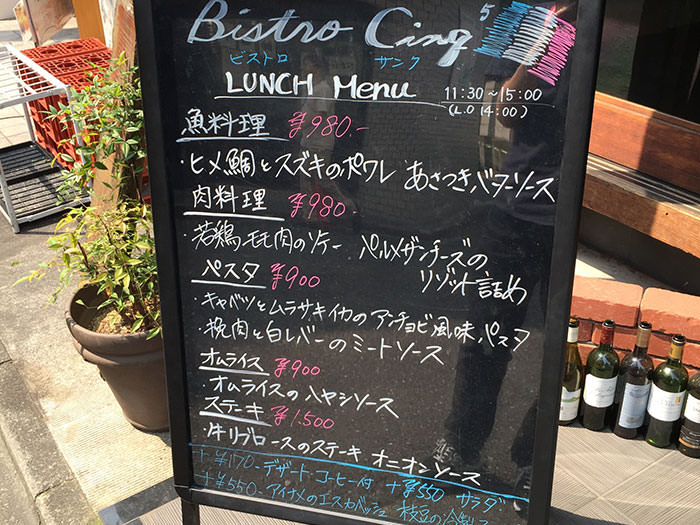 Bistro Cinq 5
ビストロ サンク
LUNCH Menu 11:30~15:00
(L.O 14:00)
魚料理 ¥980.-
・ヒメ鯛とスズキのポワレ あさつきバターソース
肉料理 ¥980-
・若鶏モモ肉のソテー パルメザンチーズの
リゾット詰め
パスタ ¥900
・キャベツとムラサキイカのアンチョビ風味パスタ
・挽肉と白レバーのミートソース
オムライス ¥900
・オムライスのハヤシソース
ステーキ ¥1.500
・牛リブロースのステーキ オニオンソース
+¥170-デザート・コーヒー付 +¥550 サラダ
+¥550-アイナメのエスカベッシュ 枝豆の冷製